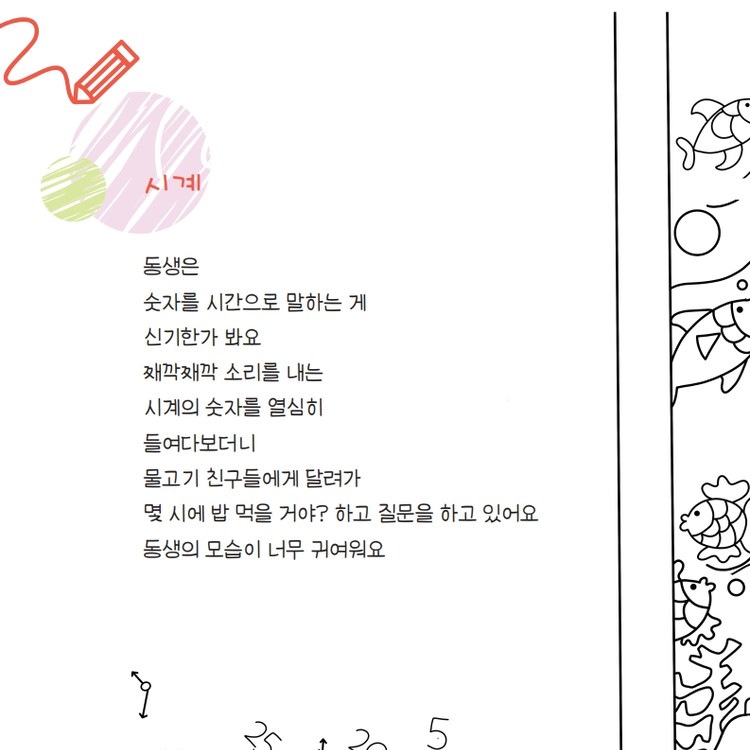 시계
동생은
숫자를 시간으로 말하는 게
신기한가 봐요
째깍째깍 소리를 내는
시계의 숫자를 열심히
들여다보더니
물고기 친구들에게 달려가
몇 시에 밥 먹을 거야? 하고 질문을 하고 있어요
동생의 모습이 너무 귀여워요
5